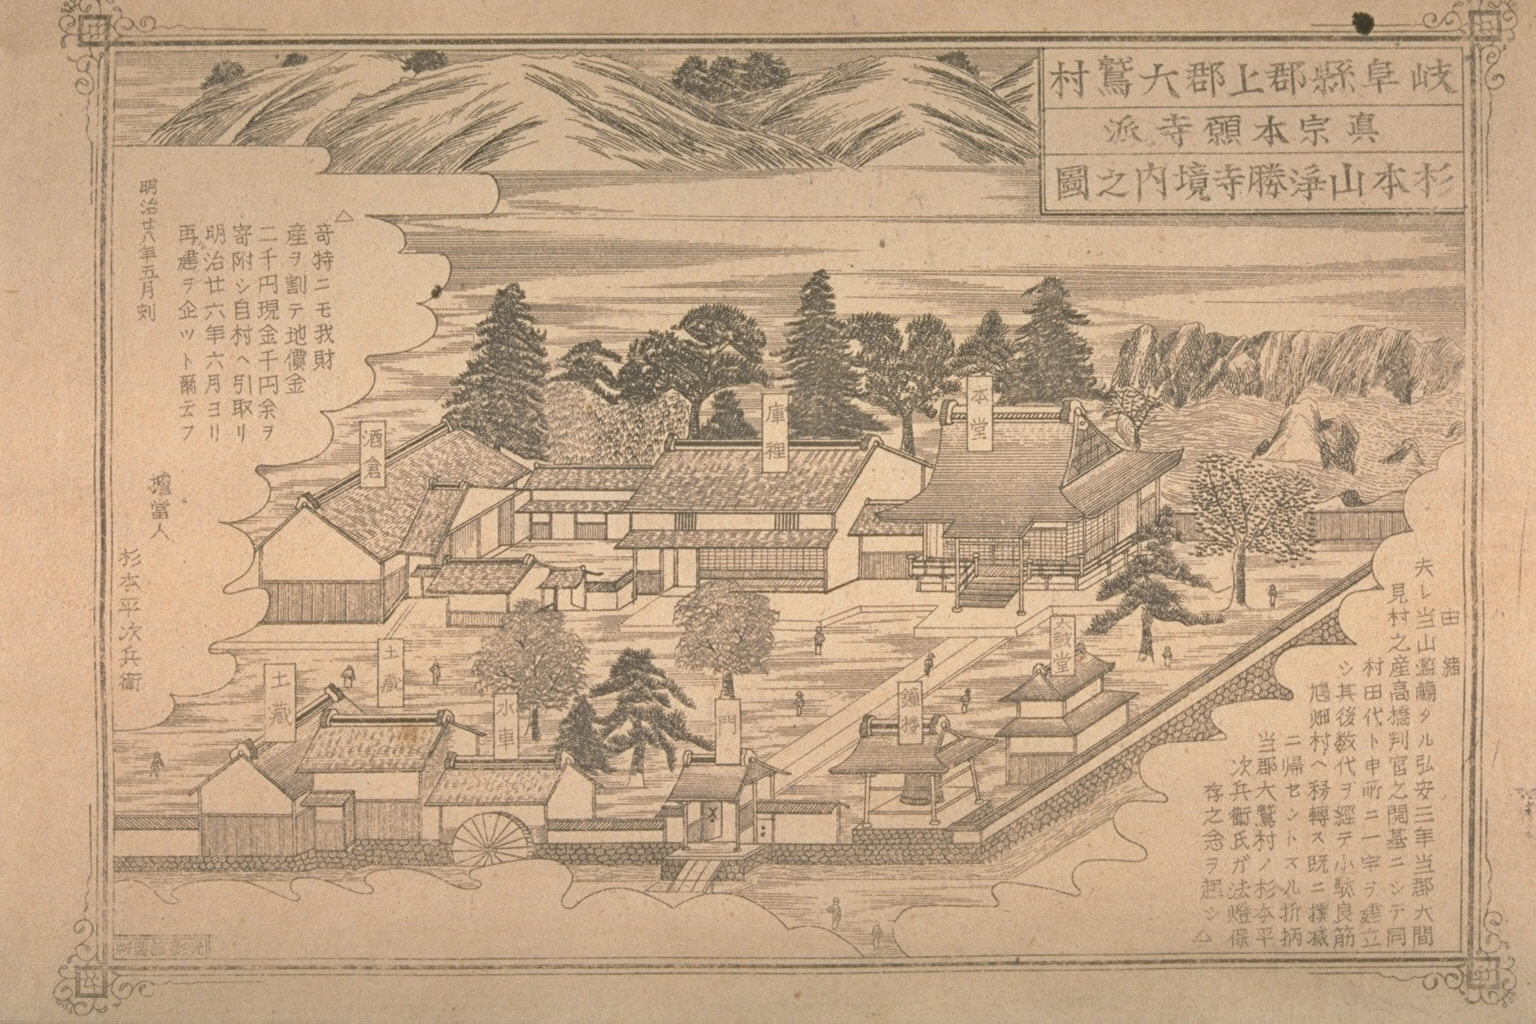 岐阜縣郡上郡大鷲村
真宗本願寺派
杉本山淨勝寺境内之圖
由緒
夫レ当山濫觴タル弘安三年当郡大間
見村之産高橋判官之開基ニシテ同
村田代ト申所ニ一宇ヲ建立
シ其後数代ヲ經テ小駄良筋
鳩畑村ヘ移轉ス既ニ撲滅
ニ帰セントスル折柄
当郡大鷲村ノ杉本平
次兵衞氏ガ法燈保
存之念ヲ起シ△
△
竒特ニモ我財
産ヲ割テ地價金
二千円現金千円余ヲ
寄附シ自村ヘ引取リ
明治廿六年六月ヨリ
再建ヲ企ツト爾云フ
明治廿八年五月刻
擔當人
杉本平次兵衞
本堂
庫裡
酒倉
土藏
土藏
水車
門
鐘楼